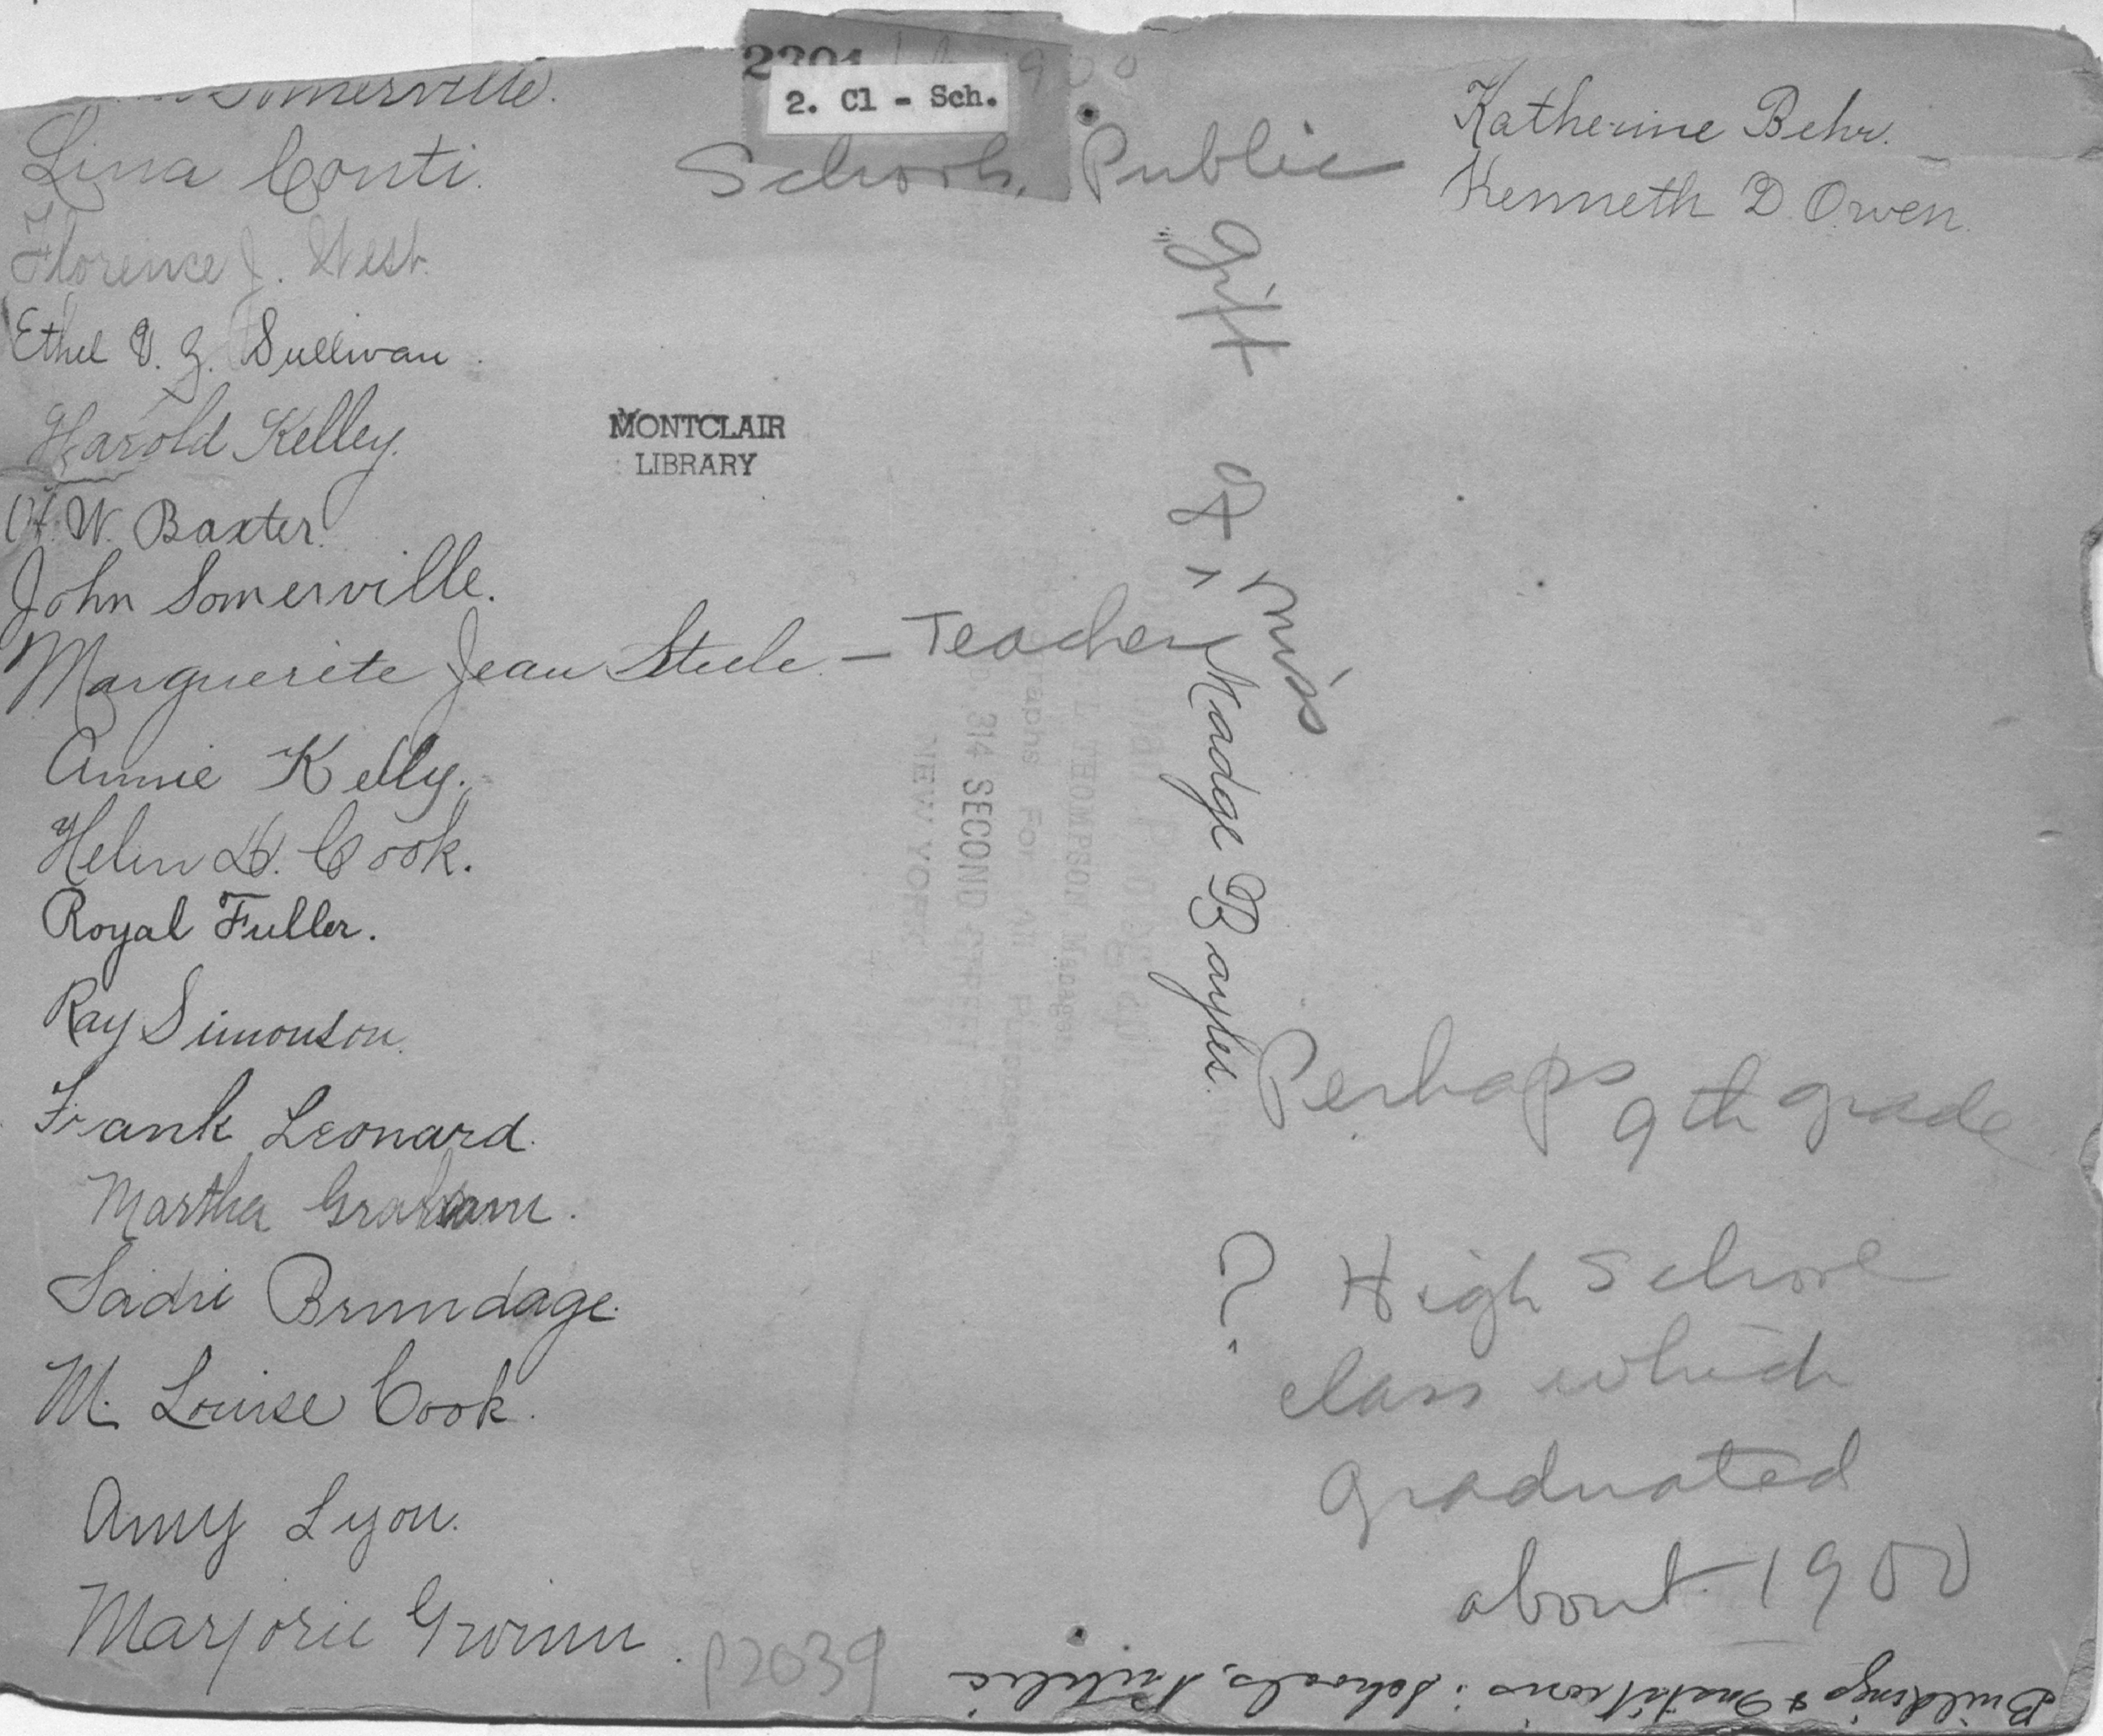 Somerville.
Lina Conti.
Florence J. West.
Ethel V. G. Sullivan.
Harold Kelley.
H. W. Baxter.
John Somerville.
Marguerite Jean Steele. — Teacher
Annie Kelly.
Helen D. Cook.
Royal Fuller.
Ray Simonson.
Frank Leonard.
Martha Graham.
Sadie Brundage.
M. Louise Cook.
Amy Lyon.
Marjorie Gwinn.
2201
2. Cl - Sch.
Schools, Public
Katherine Behr.
Kenneth D. Owen.
MONTCLAIR
LIBRARY
gift of
Miss
Madge Bayles.
THOMPSON Manager
Photographs For All Purposes
314 SECOND STREET
NEW YORK
Perhaps 9th grade
? High School
class which
graduated
about 1900
P2039
Buildings & Institutions: Schools, Public